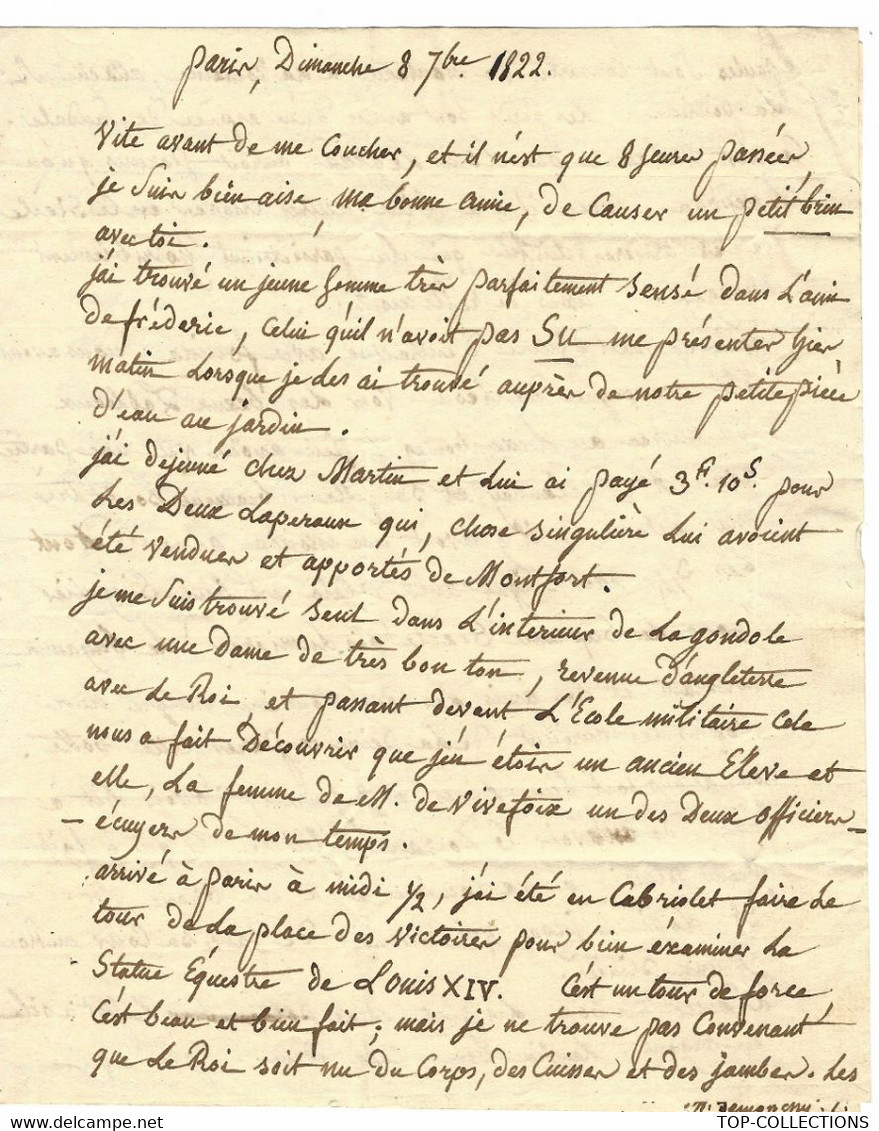 Paris, Dimanche 8 7bre 1822.
Vite avant de me Coucher, et il n'est que 8 heures passées,
je suis bien aise, ma bonne amie, de Causer un petit brin
avec toi.
j'ai trouvé un jeune homme très parfaitement sensé dans L'ami
de fréderic, Celui qu'il n'avoit pas Su me présenter hier
matin Lorsque je les ai trouvé auprès de notre petite pièce
d'eau au jardin.
j'ai dejeuné chez Martin et Lui ai payé 3ff. 10s. pour
Les Deux Laperaux qui, chose singulière Lui avoient
été vendues et apportés de Montfort.
je me Suis trouvé seul dans L'interieur de La gondole
avec une Dame de très bon ton, revenue d'angleterre
avec Le Roi, et passant devant L'École militaire Cela
nous a fait Découvrir que j'en étois un ancien Éleve et
elle, La femme de M. de Vivefoix un des Deux officiers-
-écuyers de mon temps.
arrivé à Paris à midi 1/2, j'ai été en Cabriolet faire Le
tour de La place des Victoires pour bien éxaminer La
Statue Équestre de Louis XIV. C'est un tour de force,
C'est beau et bien fait; mais je ne trouve pas Convenant
que Le Roi soit nu du Corps, des Cuisses et des jambes. Les
TOP-COLLECTIONS